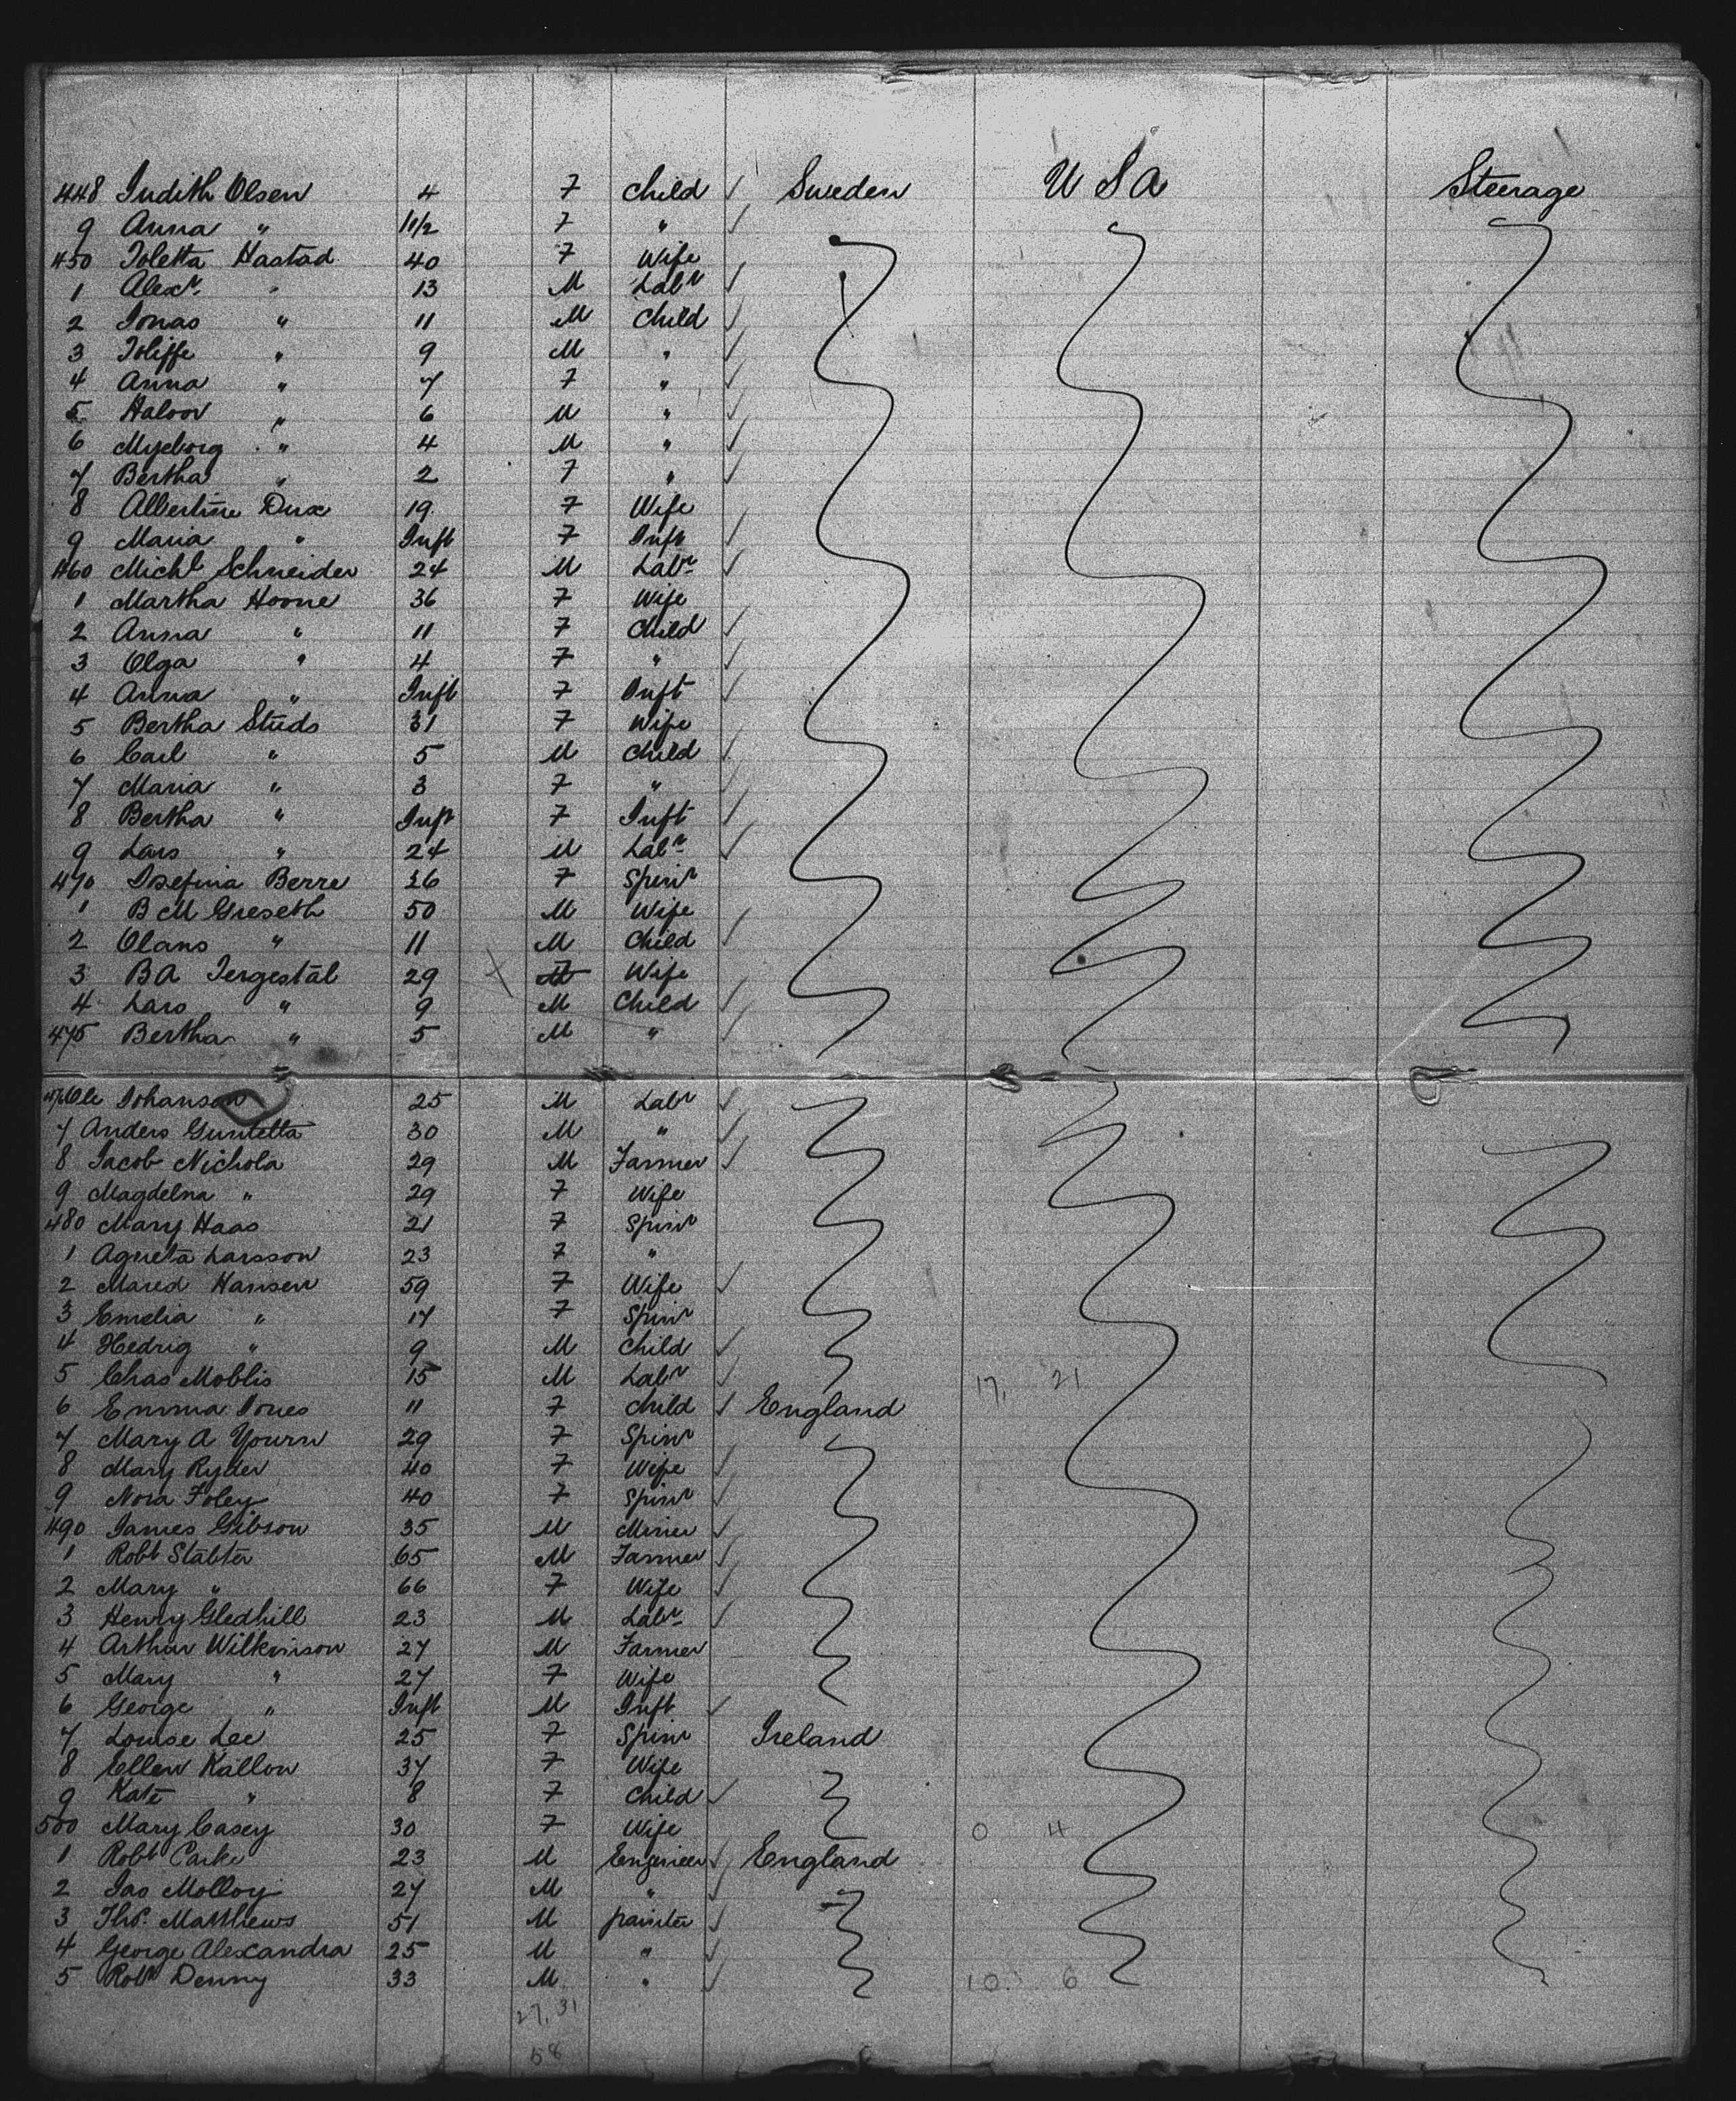 448 Judith Olsen 4 F Child ✓ Sweden U S A Steerage
9 Anna " 11/2 F " ✓
450 Toletta Hastad 40 F Wife
1 Alexr " 13 M Labr ✓
2 Jonas " 11 M Child ✓
3 Toliffe " 9 M " ✓
4 Anna " 7 F " ✓
5 Haloor " 6 M " ✓
6 Myeborg " 4 M " ✓
7 Bertha " 2 F " ✓
8 Albertine Dux 19 F Wife
9 Maria " Inft F Inft ✓
460 Michl Schneider 24 M Labr ✓
1 Martha Hoone 36 F Wife
2 Anna " 11 F Child ✓
3 Olga " 4 F " ✓
4 Anna " Inft F Inft ✓
5 Bertha Studs 31 F Wife
6 Carl " 5 M Child ✓
7 Maria " 3 F " ✓
8 Bertha " Inft F Inft ✓
9 Lars " 24 M Labr ✓
470 Josefina Berre 26 F Spinr
1 B M Greseth 50 M Wife ✓
2 Olans " 11 M Child ✓
3 B A Tergestal 29 F Wife
4 Lars " 9 M Child ✓
475 Bertha " 5 M " ✓
476 Ole Johanson 25 M Labr ✓
7 Anders Guntetta 30 M " ✓
8 Jacob Nichola 29 M Farmer ✓
9 Magdelna " 29 F Wife
480 Mary Haas 21 F Spinr
1 Agneta Larsson 23 F "
2 Mared Hansen 59 F Wife ✓
3 Emelia " 17 F Spinr
4 Hedrig " 9 M Child ✓
5 Chas Moblis 15 M Labr ✓ 17, 21
6 Emma Jones 11 F Child ✓ England
7 Mary A Yourn 29 F Spinr
8 Mary Ryder 40 F Wife ✓
9 Nora Foley 40 F Spinr ✓
490 James Gibson 35 M Miner ✓
1 Robt Stabter 65 M Farmer ✓
2 Mary " 66 F Wife ✓
3 Henry Gledhill 23 M Labr ✓
4 Arthur Wilkinson 27 M Farmer
5 Mary " 27 F Wife
6 George " Inft M Inft ✓
7 Louise Lee 25 F Spinr Ireland
8 Ellen Kallon 37 F Wife
9 Kate " 8 F Child ✓
500 Mary Casey 30 F Wife 0 4
1 Robt Parke 23 M Engineer ✓ England
2 Jas Molloy 27 M " ✓
3 Thos. Matthews 51 M painter ✓
4 George Alexandra 25 M " ✓
5 Robt Denny 33 M " ✓ 10 6
27, 31
58